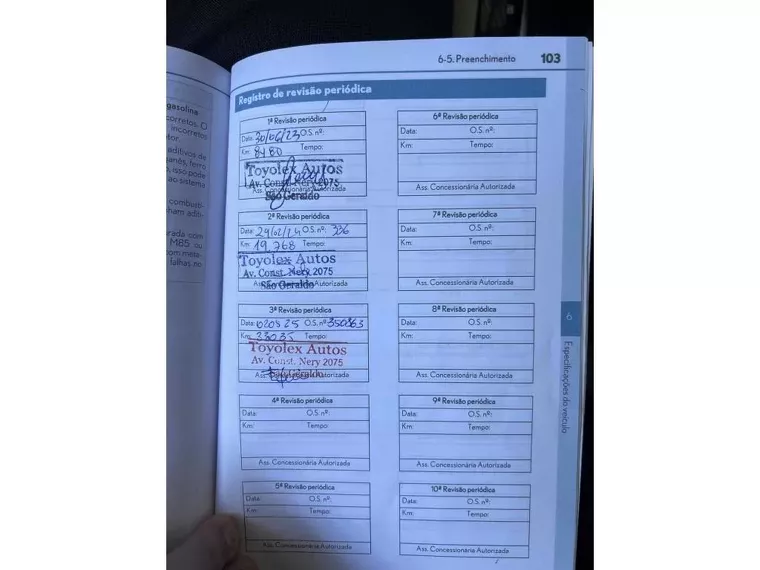 6-5. Preenchimento 103
Registro de revisão periódica
gasolina
corretos. O
incorretos
tor.
aditivos de
ganês, ferro
o, isso pode
ao sistema
combustí-
ham adit-
urada com
M85 ou
com meta-
falhas no
1ª Revisão periódica
Data: 30/06/23 O.S. nº:
Km: 8480 Tempo:
Toyolex Autos
Av. Const. Nery 2075
Ass. Concessionária Autorizada
São Geraldo
2ª Revisão periódica
Data: 29/02/24 O.S. nº: 336
Km: 19.768 Tempo:
Toyolex Autos
Av. Const. Nery 2075
Ass. Concessionária Autorizada
São Geraldo
3ª Revisão periódica
Data: 020525 O.S. nº: 350363
Km: 23035 Tempo:
Toyolex Autos
Av. Const. Nery 2075
Ass. Concessionária Autorizada
São Geraldo
4ª Revisão periódica
Data: O.S. nº:
Km: Tempo:
Ass. Concessionária Autorizada
5ª Revisão periódica
Data: O.S. nº:
Km: Tempo:
Ass. Concessionária Autorizada
6ª Revisão periódica
Data: O.S. nº:
Km: Tempo:
Ass. Concessionária Autorizada
7ª Revisão periódica
Data: O.S. nº:
Km: Tempo:
Ass. Concessionária Autorizada
8ª Revisão periódica
Data: O.S. nº:
Km: Tempo:
Ass. Concessionária Autorizada
9ª Revisão periódica
Data: O.S. nº:
Km: Tempo:
Ass. Concessionária Autorizada
10ª Revisão periódica
Data: O.S. nº:
Km: Tempo:
Ass. Concessionária Autorizada
6
Especificações do veículo